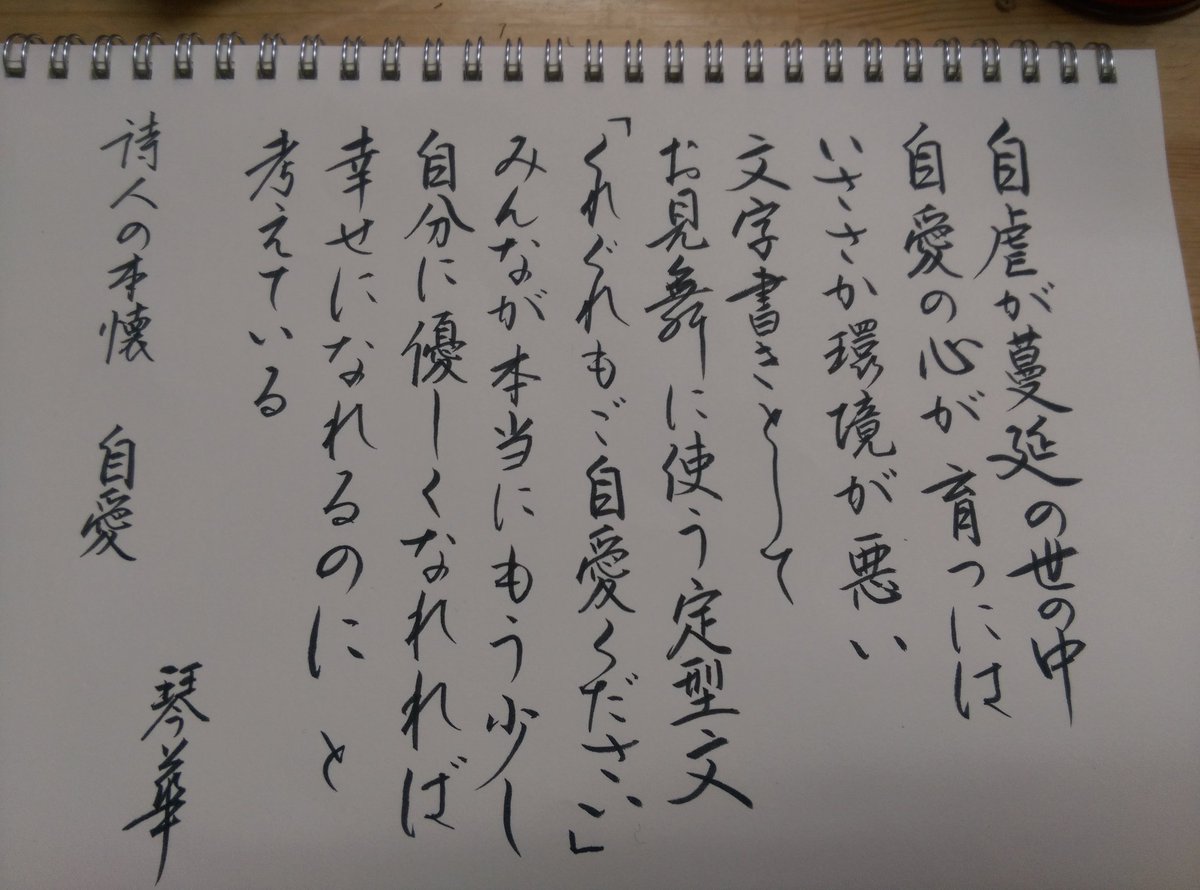 自虐が蔓延の世の中
自愛の心が育つには
いささか環境が悪い
文字書きとして
お見舞に使う定型文
「くれぐれもご自愛ください」
みんなが本当にもう少し
自分に優しくなれれば
幸せになれるのにと
考えている
詩人の本懐 自愛
琴華